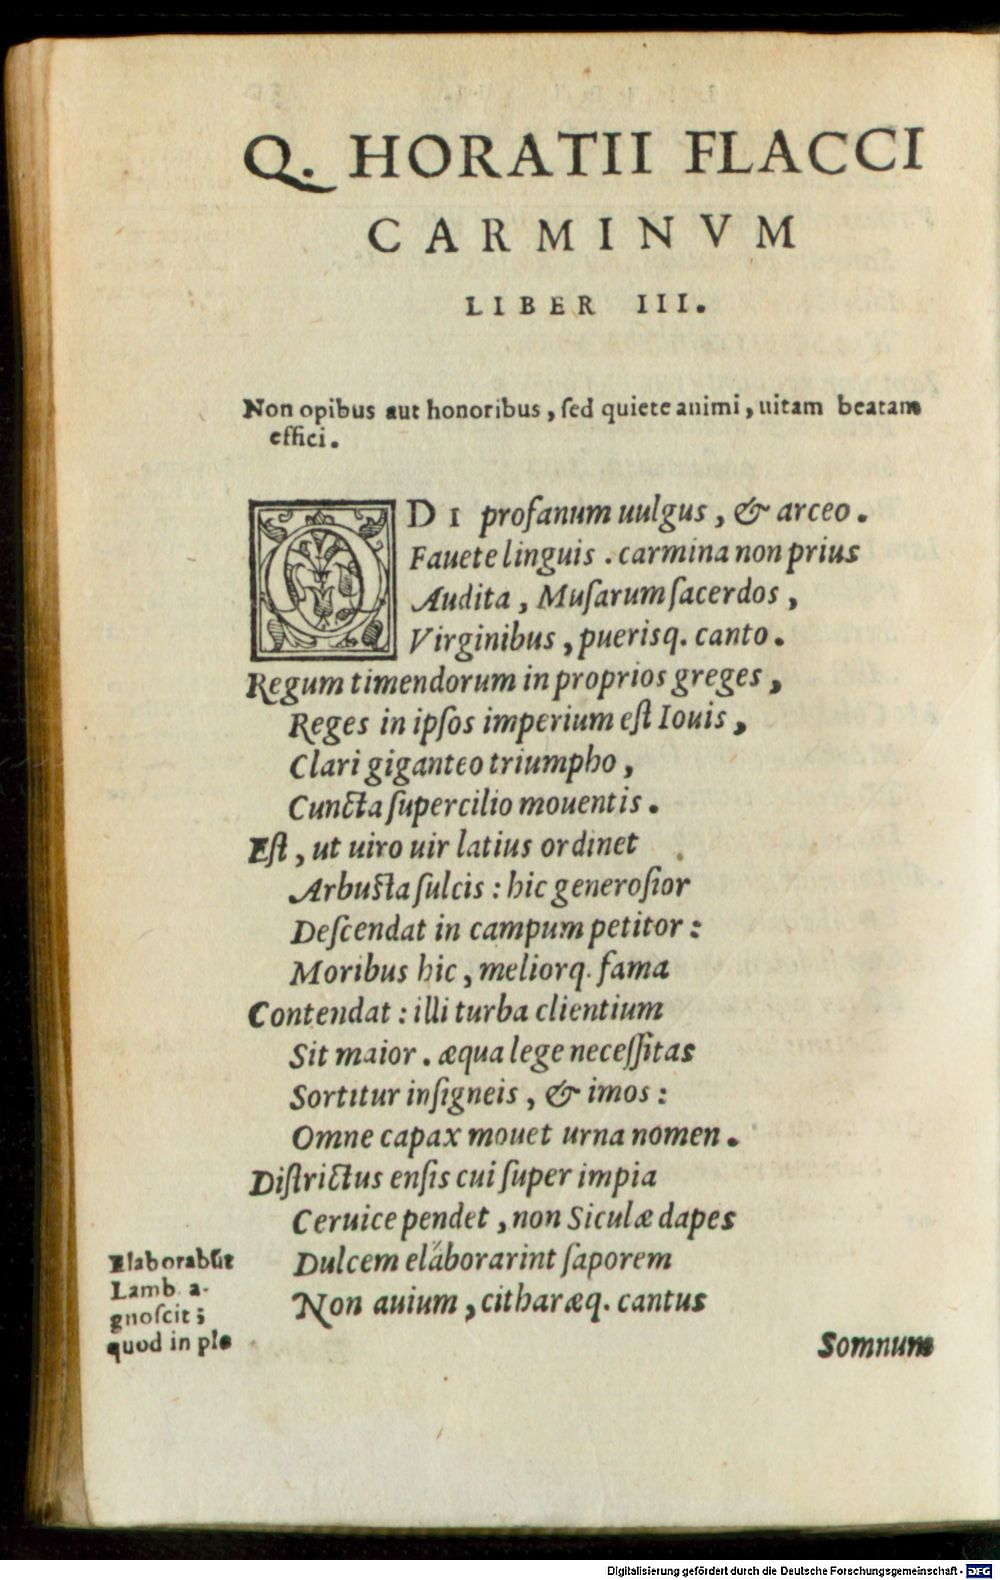 Q. HORATII FLACCI
CARMINVM
LIBER III.
Non opibus aut honoribus, sed quiete animi, uitam beatam
effici.
ODI profanum uulgus, & arceo.
Fauete linguis. carmina non prius
Audita, Musarum sacerdos,
Virginibus, puerisq. canto.
Regum timendorum in proprios greges,
Reges in ipsos imperium est Iouis,
Clari giganteo triumpho,
Cuncta supercilio mouentis.
Est, ut uiro uir latius ordinet
Arbusta sulcis: hic generosior
Descendat in campum petitor:
Moribus hic, meliorq. fama
Contendat: illi turba clientium
Sit maior. æqua lege necessitas
Sortitur insigneis, & imos:
Omne capax mouet urna nomen.
Districtus ensis cui super impia
Ceruice pendet, non Siculæ dapes
Dulcem elaborarint saporem
Non auium, citharæq. cantus
Elaborabūt
Lamb. a-
gnoscit;
quod in ple
Somnum
Digitalisierung gefördert durch die Deutsche Forschungsgemeinschaft - DFG